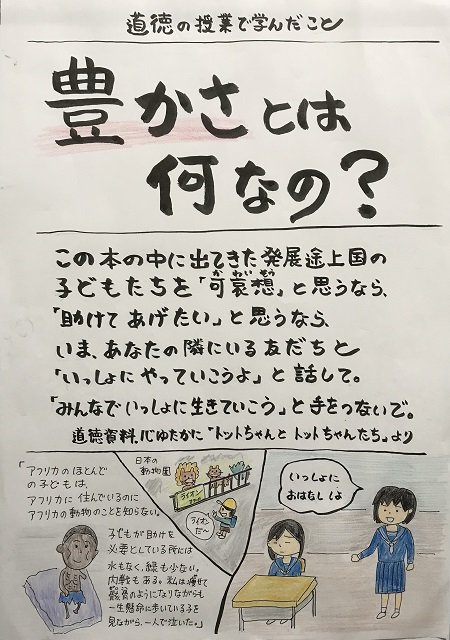 道徳の授業で学んだこと
豊かさとは
何なの？
この本の中に出てきた発展途上国の
子どもたちを「可哀想」と思うなら、
かわいそう
「助けてあげたい」と思うなら、
いま、あなたの隣にいる友だちと
「いっしょにやっていこうよ」と話して。
「みんなでいっしょに生きていこう」と手をつないで。
道徳資料、心ゆたかに "トットちゃんとトットちゃんたち" より
「アフリカのほとんど
の子どもは、
アフリカに住んでいるのに
アフリカの動物のことを知らない。
子どもが助けを
必要としている所には
水もなく、緑も少ない。
内戦もある。私は痩せて
骸骨のようになりながらも
一生懸命に歩いている子を
見ながら、一人で泣いた。」
日本の
動物園
ライオン
ライオン
だ〜
いっしょに
おはなししよ